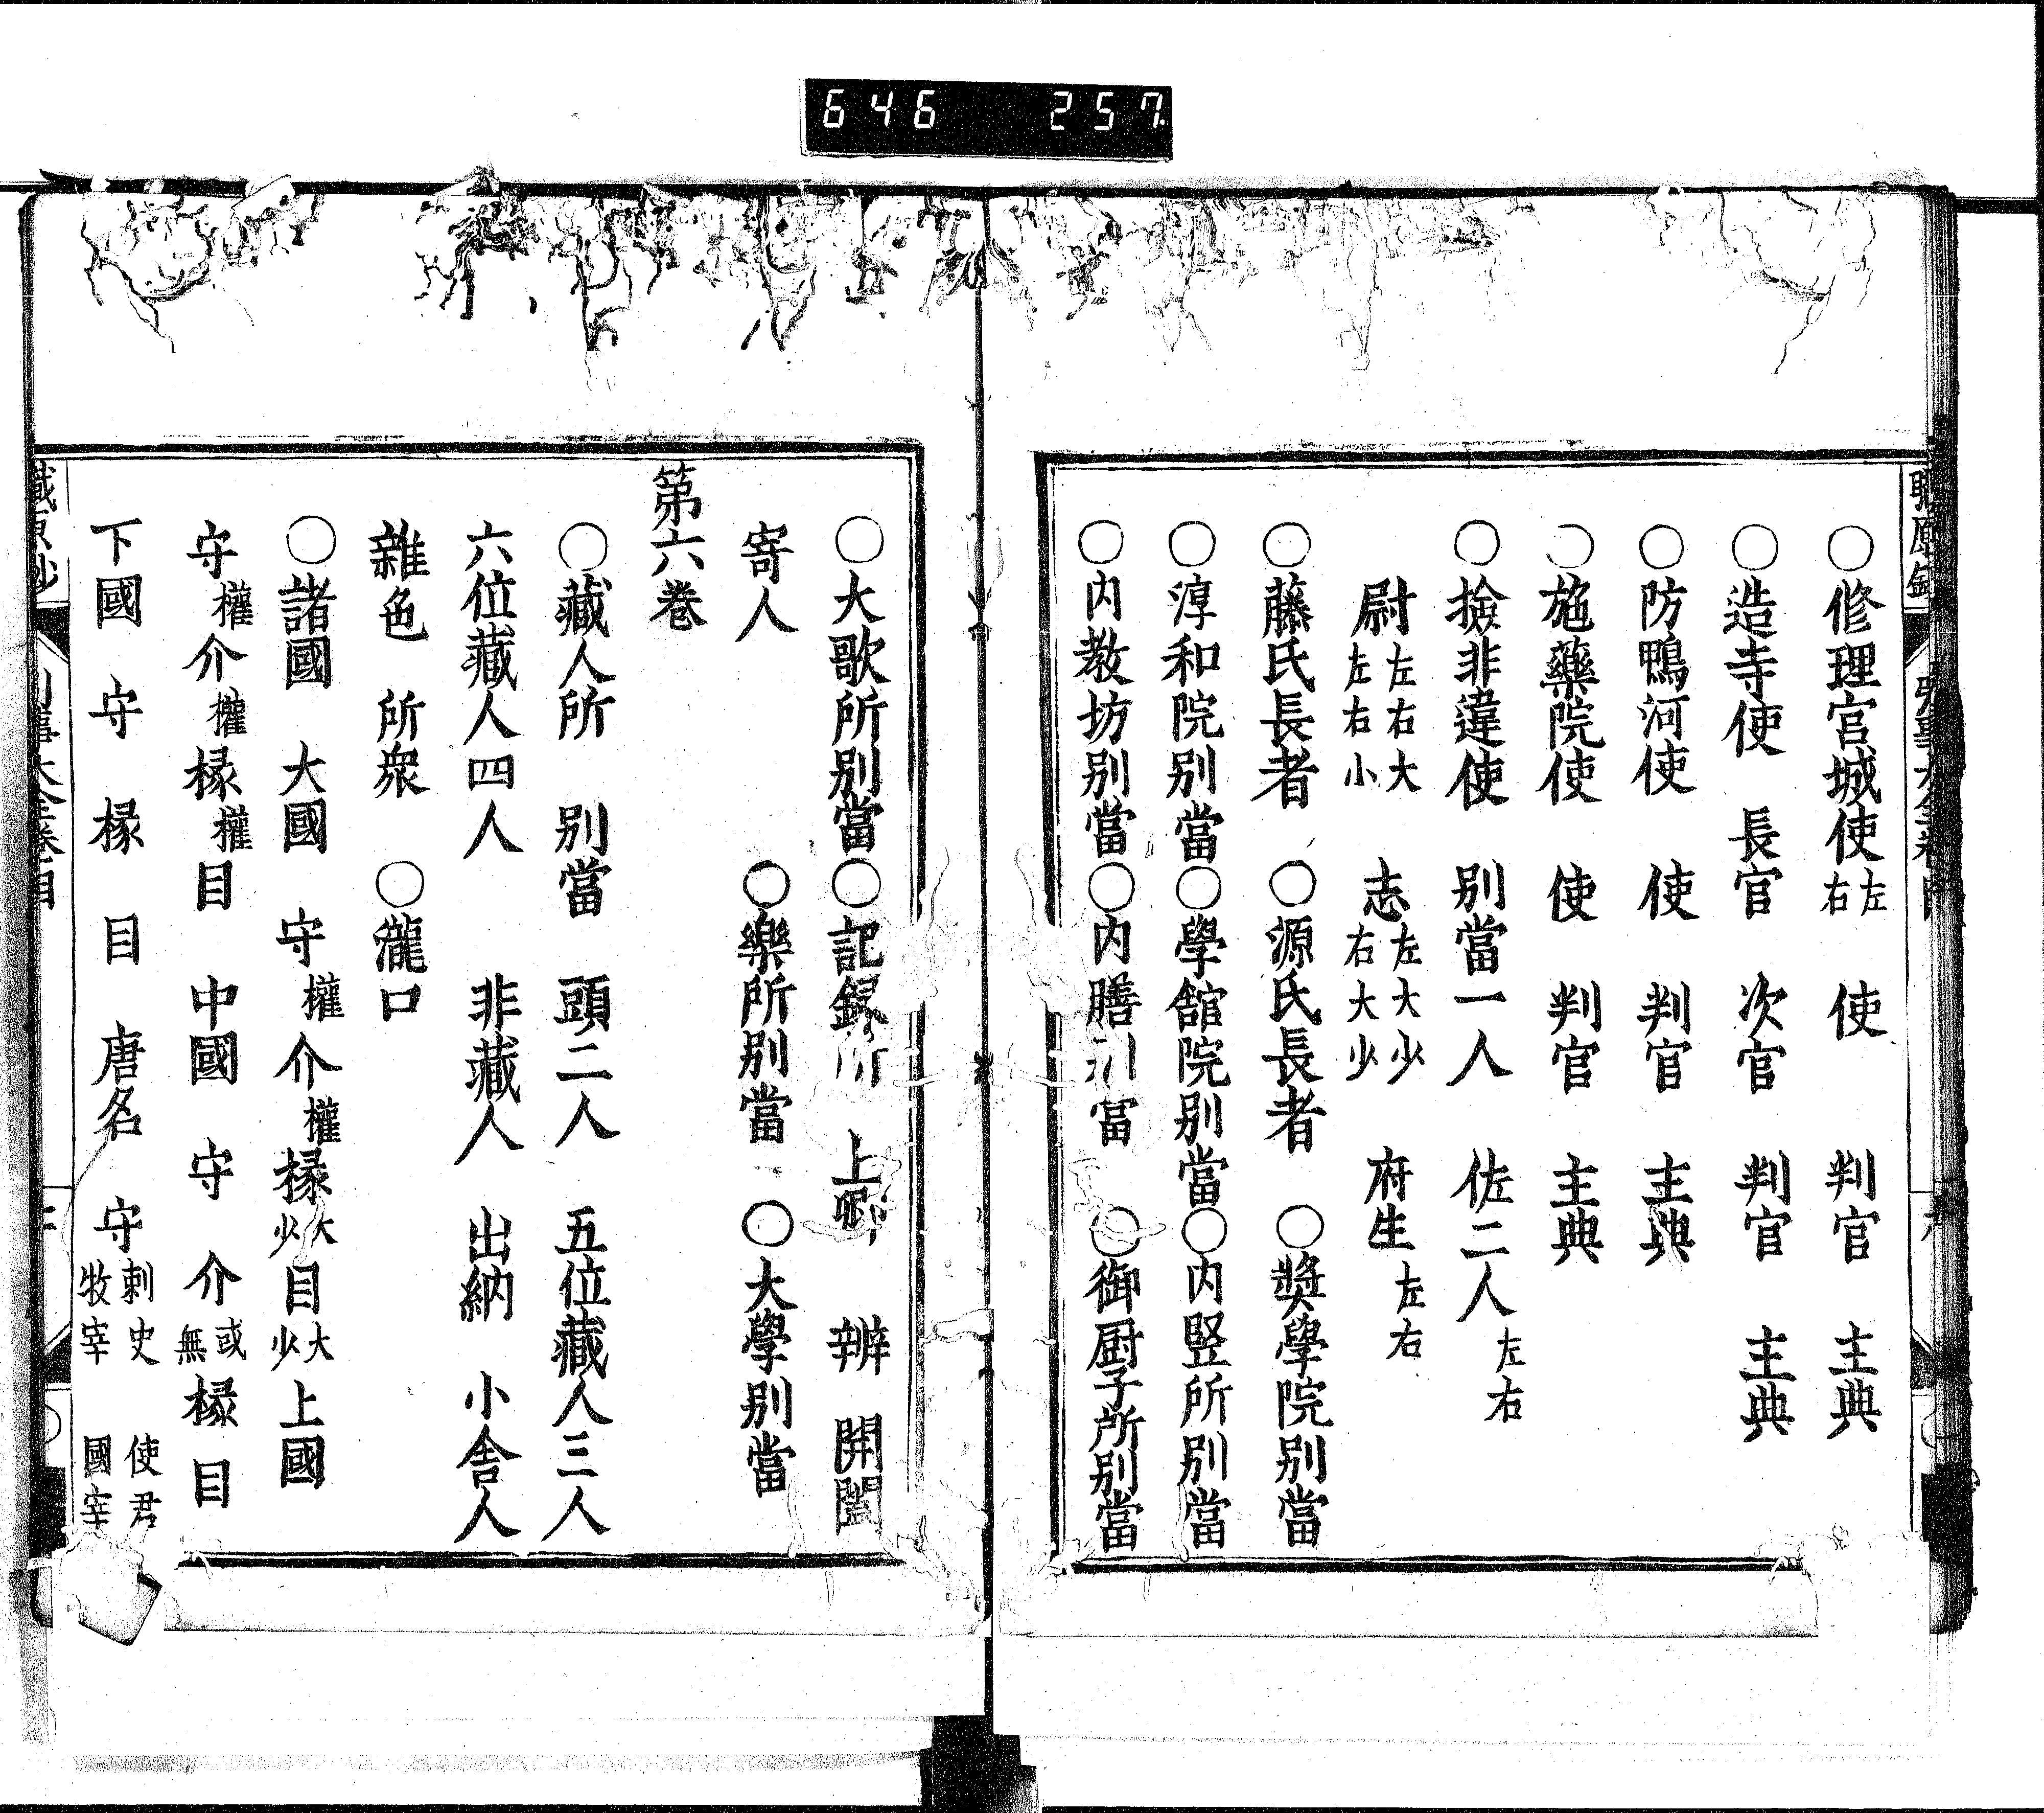 646 257
○修理宮城使左右 使 判官 主典
○造寺使 長官 次官 判官 主典
○防鴨河使 使 判官 主典
○施藥院使 使 判官 主典
○撿非違使 別當一人 佐二人左右
尉左右大左右小 志左大少右大少 府生左右
○藤氏長者 ○源氏長者 ○奬學院別當
○淳和院別當○學舘院別當○内竪所別當
○内教坊別當○内膳別當 ○御厨子所別當
○大歌所別當○記録所 上卿 辨 開闔
寄人 ○樂所別當 ○大學別當
第六巻
○藏人所 別當 頭二人 五位藏人三人
六位藏人四人 非藏人 出納 小舎人
雜色 所衆 ○瀧口
○諸國 大國 守權介權掾大少目大少上國
守權介權掾權目 中國 守 介或無掾目
下國 守 掾 目 唐名 守刺史牧宰 使君國宰